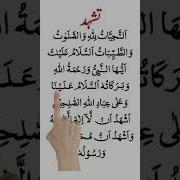 تشہد
اَلتَّحِيَّاتُ لِلّٰهِ وَالصَّلَوٰتُ
وَالطَّيِّبَاتُ اَلسَّلَامُ عَلَيْكَ
اَيُّهَا النَّبِيُّ وَرَحْمَةُ اللّٰهِ
وَبَرَكَاتُهُ اَلسَّلَامُ عَلَيْنَا
وَعَلٰى عِبَادِ اللّٰهِ الصّٰلِحِيْنَ
اَشْهَدُ اَنْ لَّا اِلٰهَ
وَاَشْهَدُ اَنَّ
وَرَسُوْلُهُ